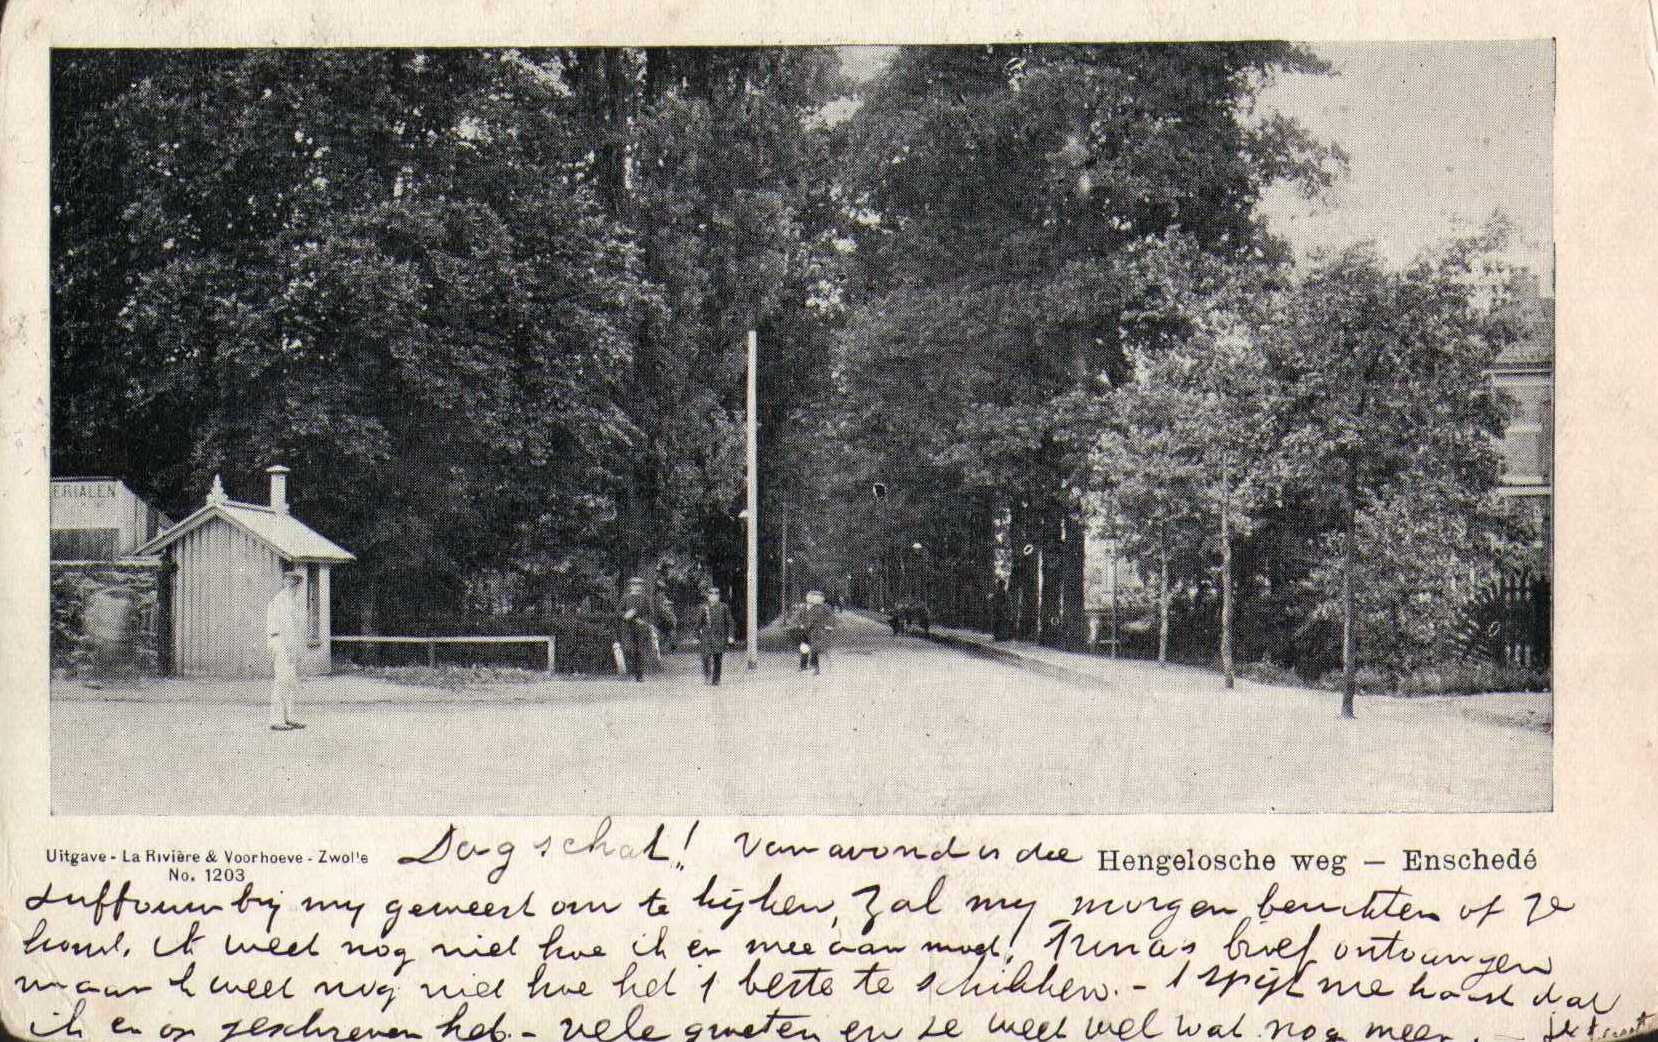 ERIALEN
Uitgave - La Rivière & Voorhoeve - Zwolle
No. 1203
Dag schat! Van avond is die
Hengelosche weg — Enschedé
juffrouw bij my geweest om te kijken, Zal my morgen berichten of ze
komt. ik weet nog niet hoe ik er mee aan moet! Trina's brief ontvangen
maar ik weet nog niet hoe het 't beste te schikken. - 't spijt me haast dat
ik er op geschreven heb - vele groeten en je weet wel wat nog meer. — je